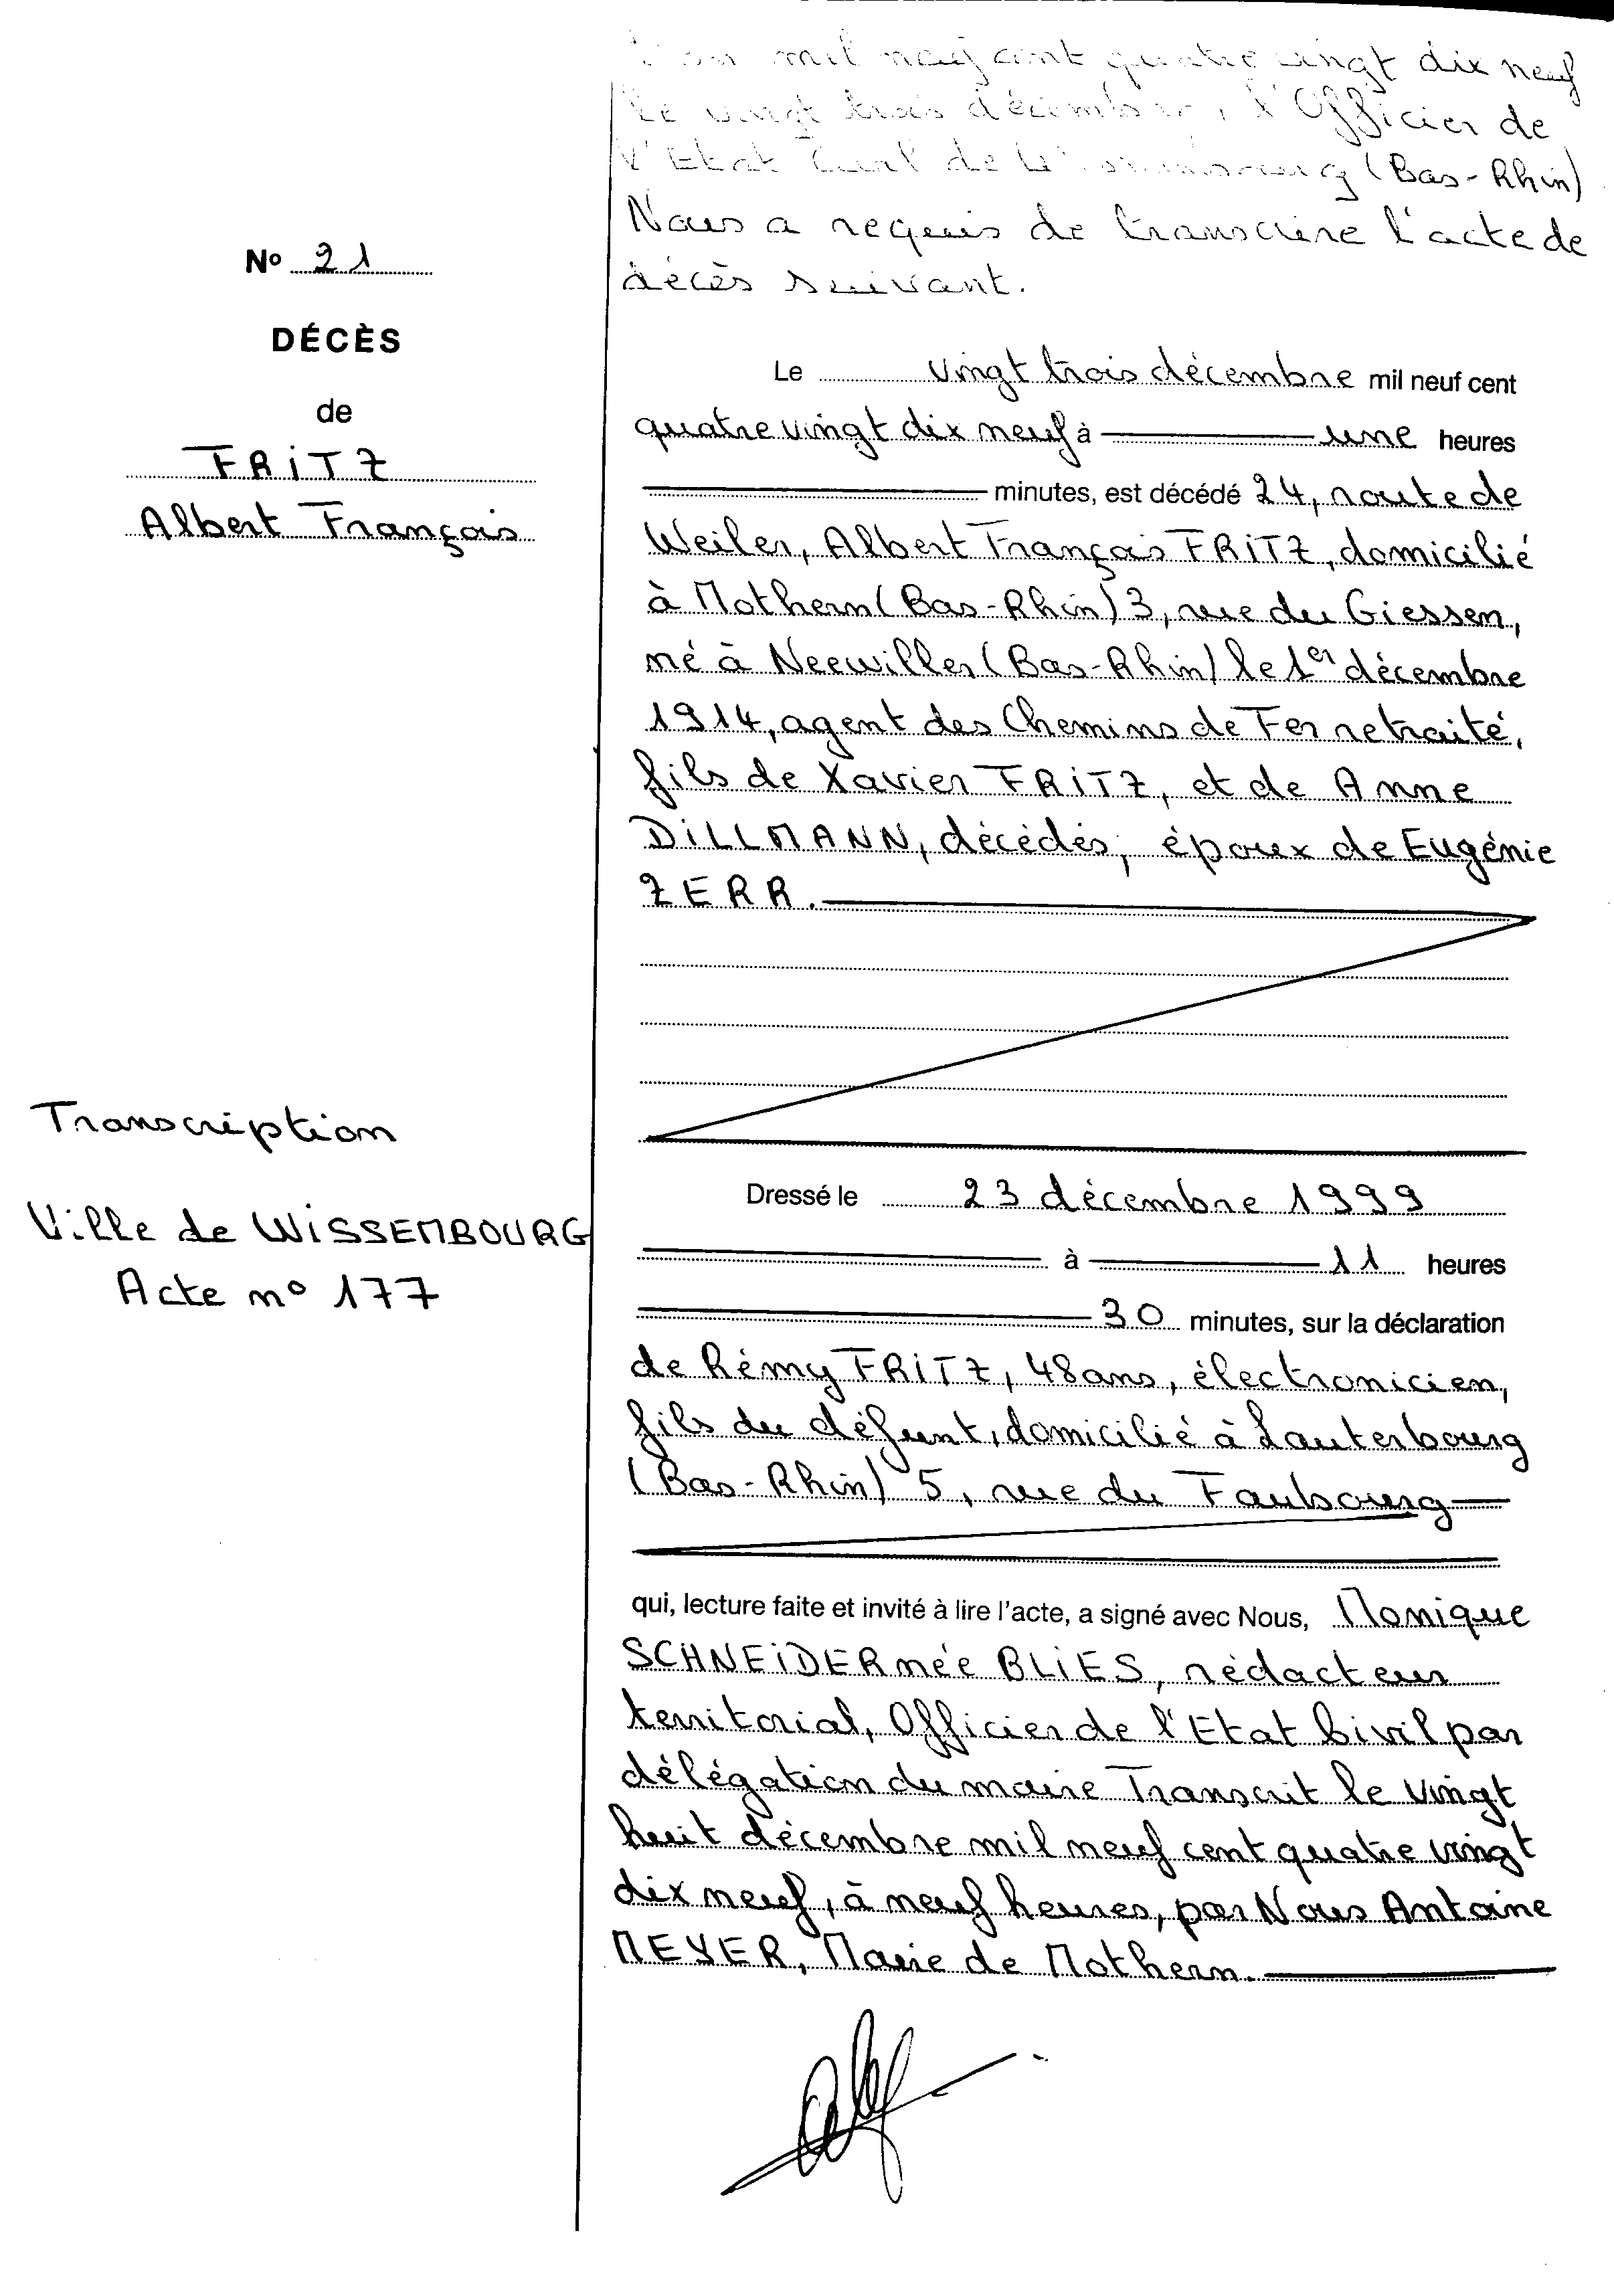 L'an mil neuf cent quatre vingt dix neuf
le vingt trois décembre, l'Officier de
l'Etat Civil de Wissembourg (Bas-Rhin)
Nous a requis de transcrire l'acte de
décès suivant.
No 21
DÉCÈS
de
FRITZ
Albert François
Le vingt trois décembre mil neuf cent
quatre vingt dix neuf à une heures
minutes, est décédé 24, route de
Weiler, Albert François FRITZ, domicilié
à Mothern (Bas-Rhin) 3, rue du Giessen,
né à Neewiller (Bas-Rhin) le 1er décembre
1914, agent des Chemins de Fer retraité,
fils de Xavier FRITZ, et de Anne
DILLMANN, décédés, époux de Eugénie
ZERR.
Transcription
Ville de WISSEMBOURG
Acte no 177
Dressé le 23 décembre 1999
à 11 heures
30 minutes, sur la déclaration
de Rémy FRITZ, 48 ans, électronicien,
fils du défunt, domicilié à Lauterbourg
(Bas-Rhin) 5, rue du Faubourg
qui, lecture faite et invité à lire l'acte, a signé avec Nous, Monique
SCHNEIDER née BLIES, rédacteur
territorial, Officier de l'Etat Civil par
délégation du maire Transcrit le vingt
huit décembre mil neuf cent quatre vingt
dix neuf, à neuf heures, par Nous Antoine
MEYER, Maire de Mothern.